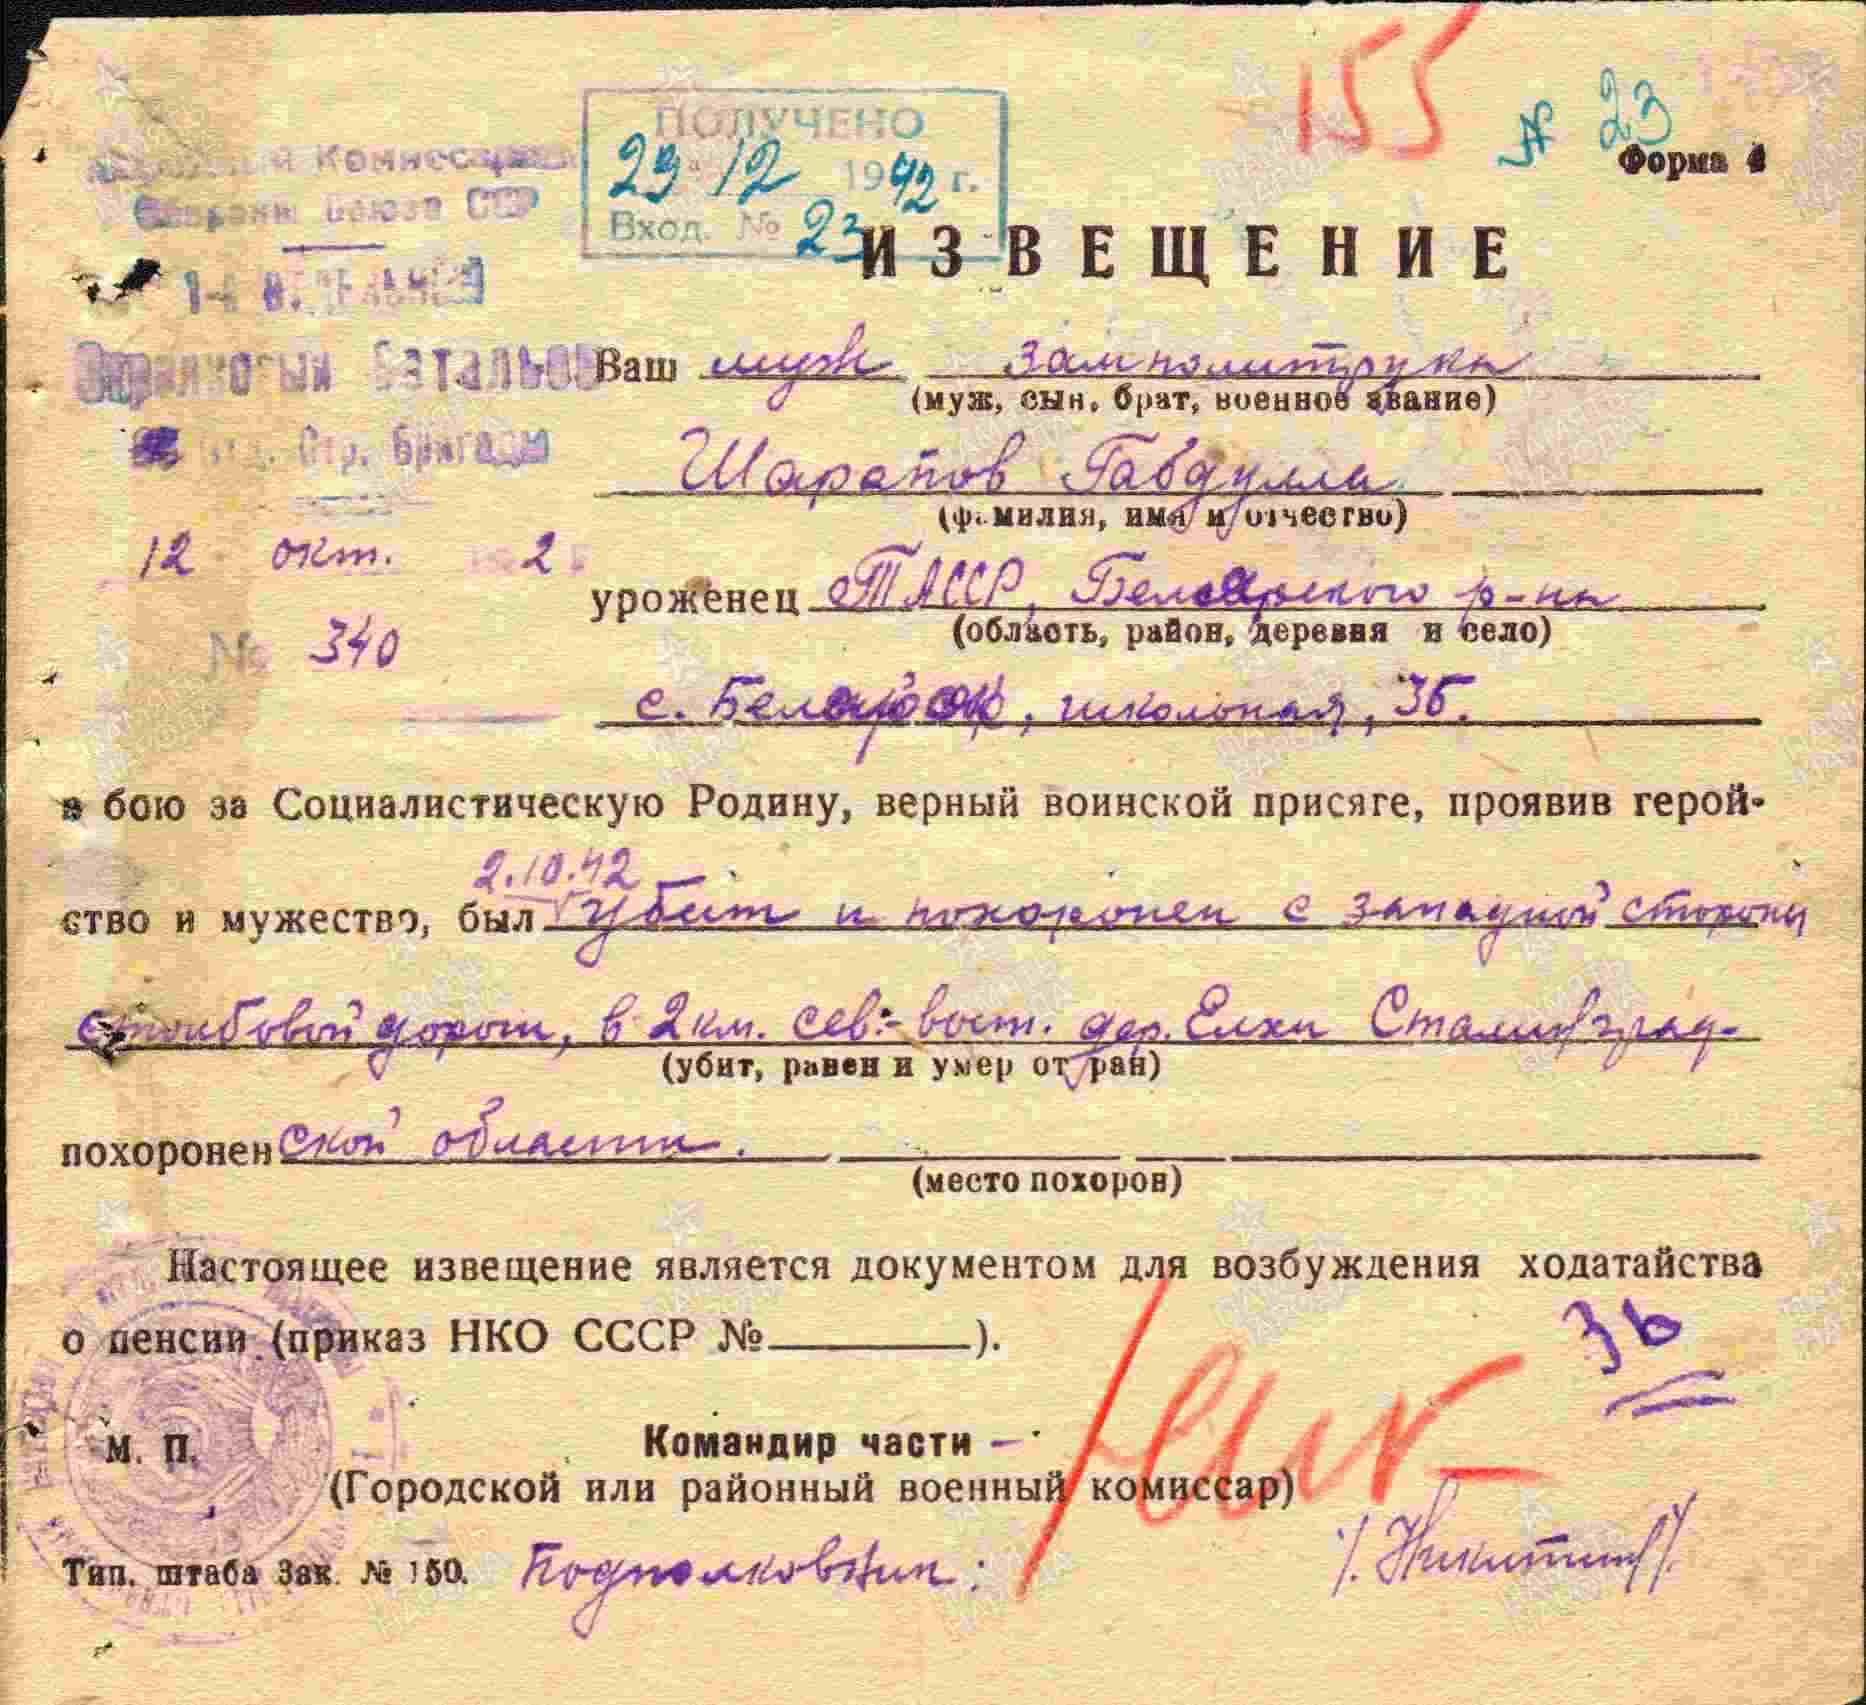 155
№ 23
Форма 4
ПОЛУЧЕНО
29 12 1942 г.
Вход. № 23
Комиссариат
Обороны Союза ССР
1-й ОТДЕЛЬНЫЙ
Стрелковый Батальон
Отд. Стр. Бригады
12 окт. 2 г
№ 340
ИЗВЕЩЕНИЕ
Ваш муж замполитрука
(муж, сын, брат, военное звание)
Шарапов Габдулла
(фамилия, имя и отчество)
уроженец ТАССР, р-на
(область, район, деревня и село)
с. школьная, 36.
в бою за Социалистическую Родину, верный воинской присяге, проявив герой-
2.10.42
ство и мужество, был убит и похоронен с западной стороны
столбовой дороги, в 2 км. сев.-вост. дер. Елхи Сталинград-
(убит, ранен и умер от ран)
похоронен ской области.
(место похорон)
Настоящее извещение является документом для возбуждения ходатайства
о пенсии (приказ НКО СССР № ).
М. П.
Командир части -
(Городской или районный военный комиссар)
Тип. штаба Зак. № 150. Подполковник: /. Никитин /.